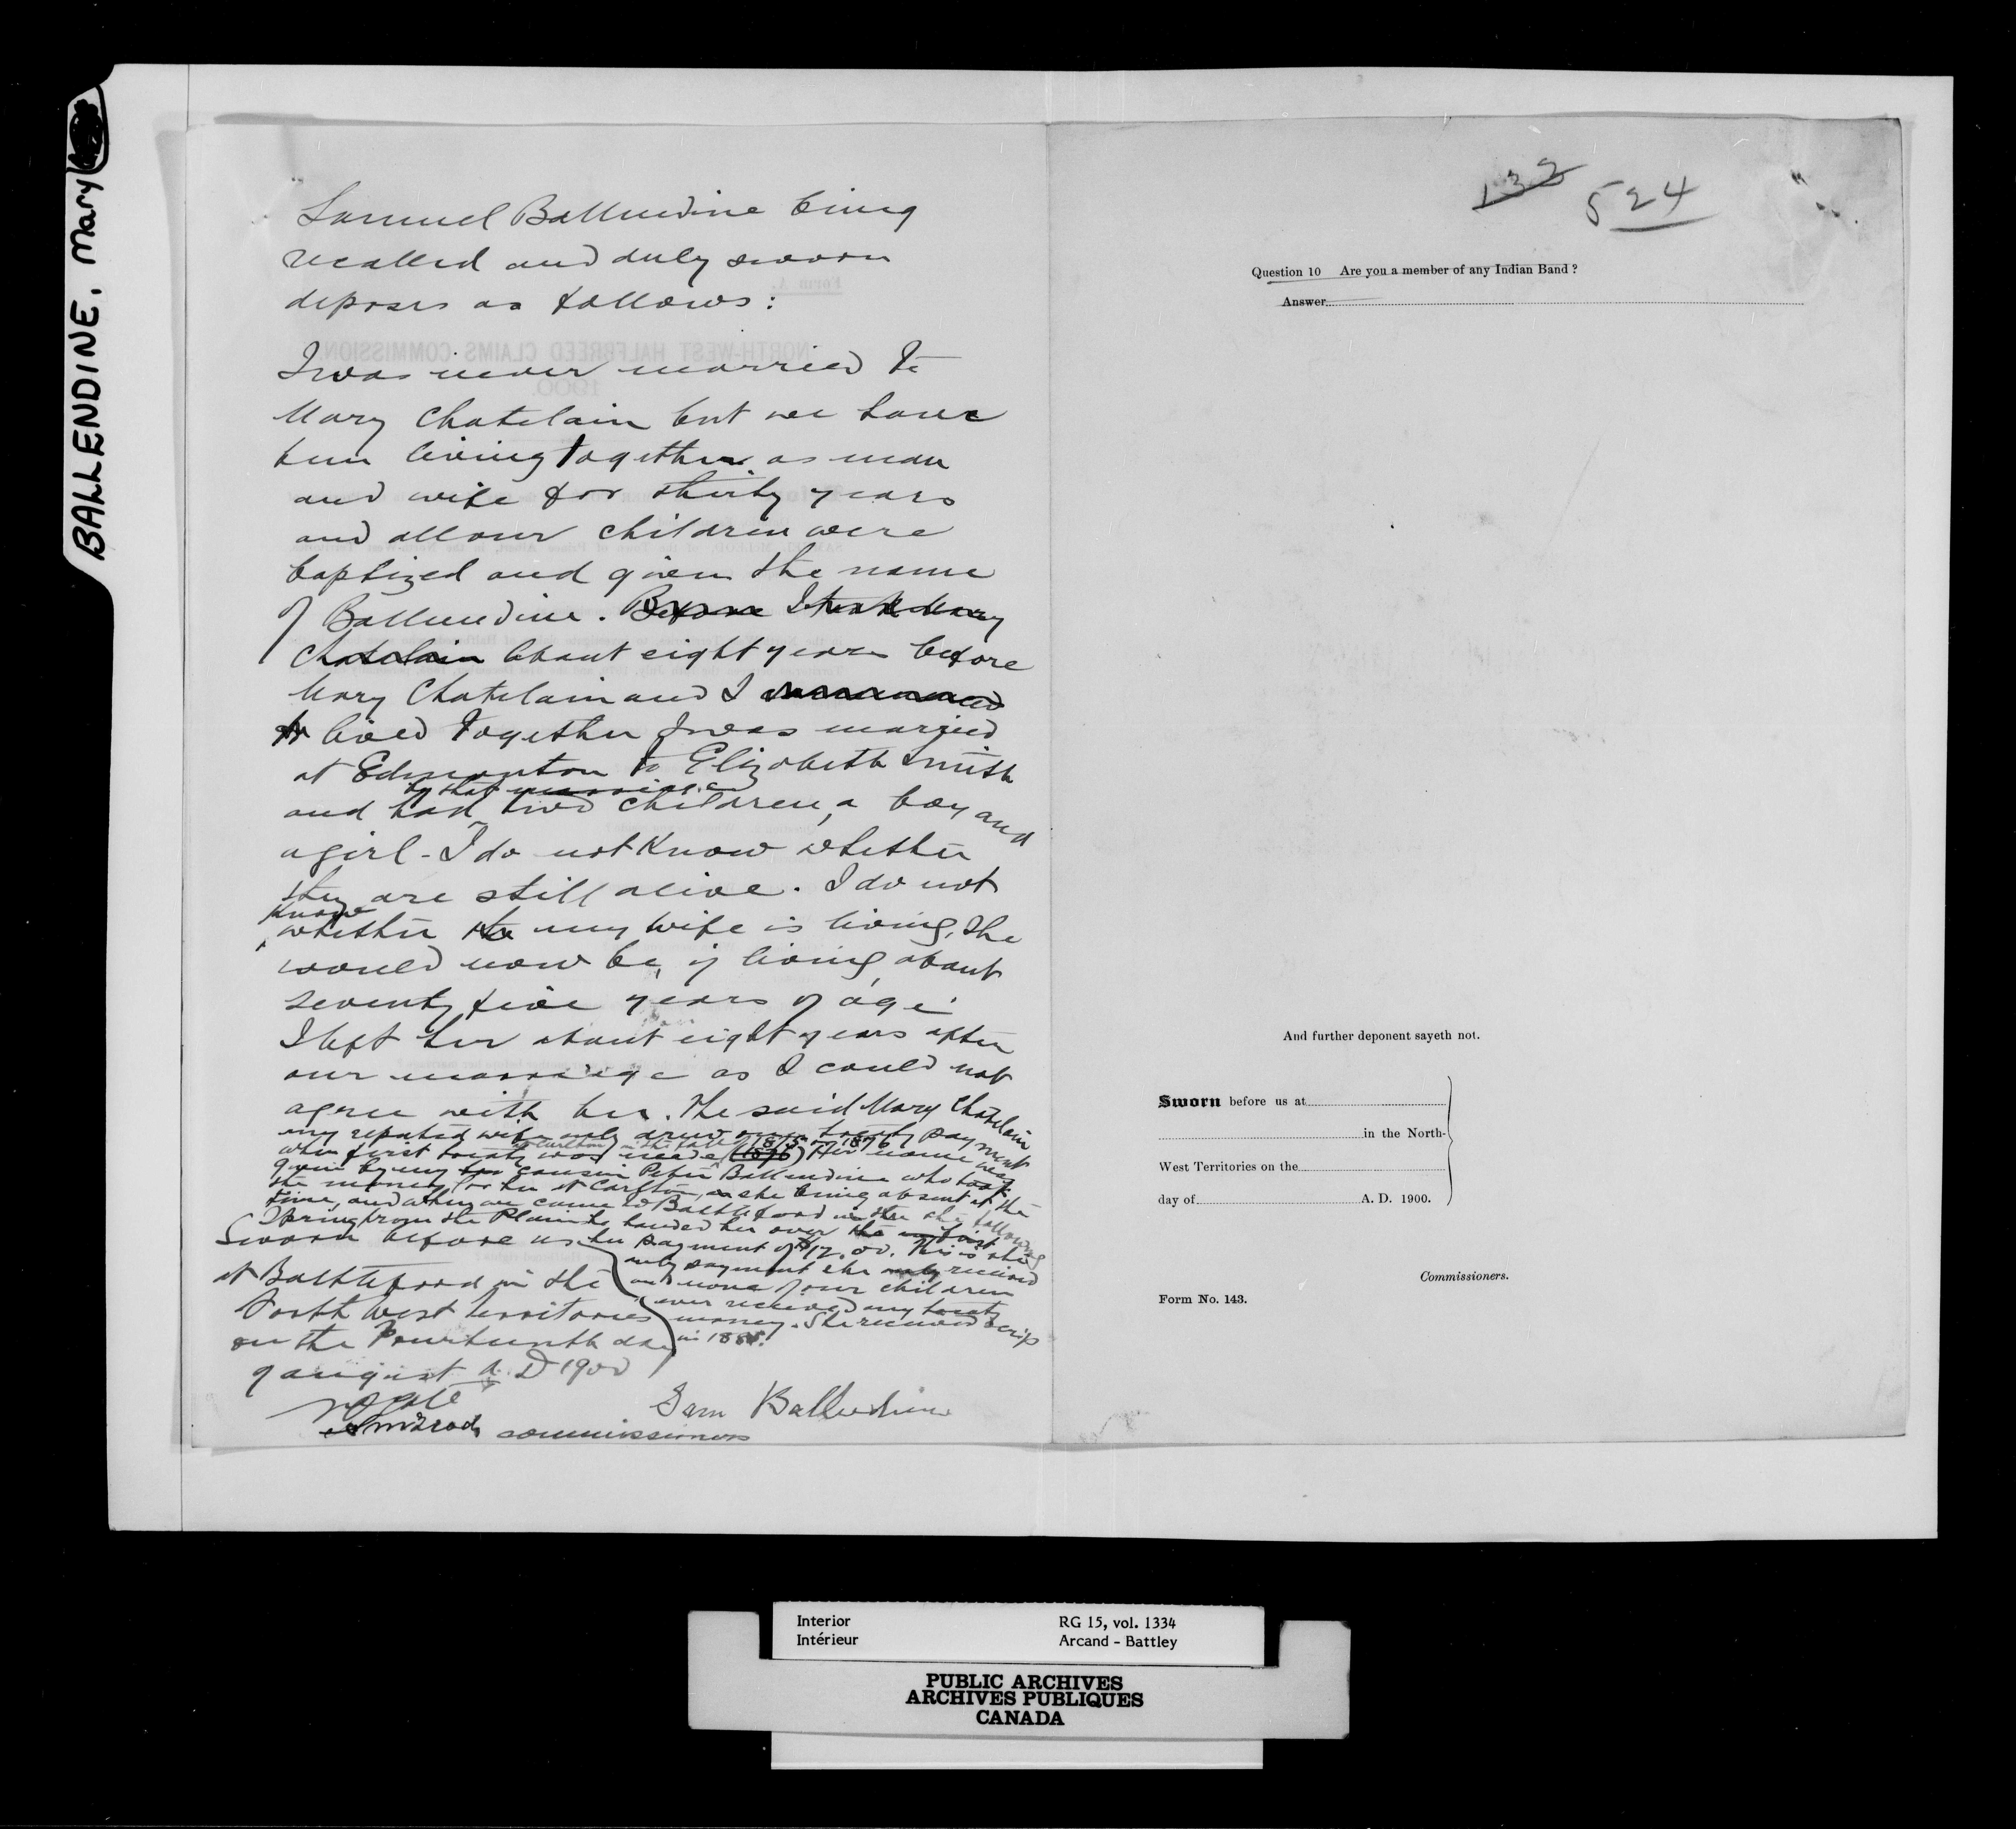 BALLENDINE, Mary
Samuel Ballendine being
recalled and duly sworn
deposes as follows:
I was never married to
Mary Chatelain but we have
been living together as man
and wife for thirty years
and all our children were
baptized and given the name
of Ballendine. Before I took Mary
Chatelain about eight years before
Mary Chatelain and I
lived together I was married
at Edmonton to Elizabeth Smith
by that marriage
and had two children, a boy and
a girl - I do not know whether
they are still alive. I do not
know
whether my wife is living, she
would now be, if living, about
seventy five years of age.
I left her about eight years after
our marriage as I could not
agree with her. The said Mary Chatelain
my reputed wife only drew one treaty payment
at Carlton in the fall 1875 or 1876
when first treaty was made (1876) Her name was
given by my cousin Peter Ballendine who took
the money for her at Carlton, she being absent at the
time, and when we came to Battleford in the following
Spring from the Plains he handed her over the first
payment of $12.00. This is the
only payment she only received
and none of our children
ever received any treaty
money. She received scrip
in 1885.
Sworn before us
at Battleford in the
North West Territories
on the Fourteenth day
of August A.D 1900
Sam Ballendine
commissioners
132 524
Question 10 Are you a member of any Indian Band?
Answer
And further deponent sayeth not.
Sworn before us at
in the North-
West Territories on the
day of A. D. 1900.
Commissioners.
Form No. 143.
Interior RG 15, vol. 1334
Intérieur Arcand - Battley
PUBLIC ARCHIVES
ARCHIVES PUBLIQUES
CANADA